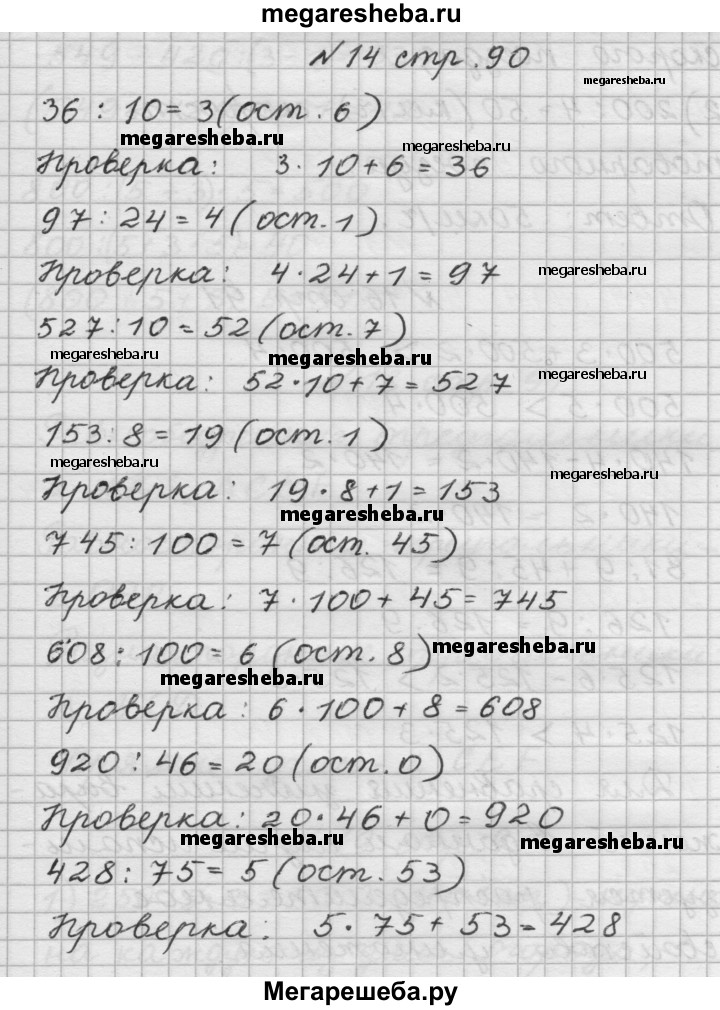 megaresheba.ru
N 14 стр. 90
megaresheba.ru
36 : 10 = 3 (ост. 6)
megaresheba.ru
megaresheba.ru
Проверка: 3 · 10 + 6 = 36
97 : 24 = 4 (ост. 1)
Проверка: 4 · 24 + 1 = 97
megaresheba.ru
527 : 10 = 52 (ост. 7)
megaresheba.ru
megaresheba.ru
Проверка: 52 · 10 + 7 = 527
megaresheba.ru
153 : 8 = 19 (ост. 1)
megaresheba.ru
megaresheba.ru
Проверка: 19 · 8 + 1 = 153
megaresheba.ru
745 : 100 = 7 (ост. 45)
Проверка: 7 · 100 + 45 = 745
608 : 100 = 6 (ост. 8)
megaresheba.ru
megaresheba.ru
Проверка: 6 · 100 + 8 = 608
920 : 46 = 20 (ост. 0)
Проверка: 20 · 46 + 0 = 920
megaresheba.ru
megaresheba.ru
428 : 75 = 5 (ост. 53)
Проверка: 5 · 75 + 53 = 428
Мегарешеба.ру